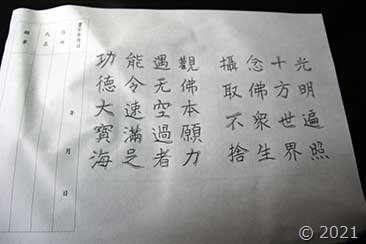 光明遍照
十方世界
念佛衆生
攝取不捨
觀佛本願力
遇无空過者
能令速滿足
功德大寶海
年 月 日
© 2021